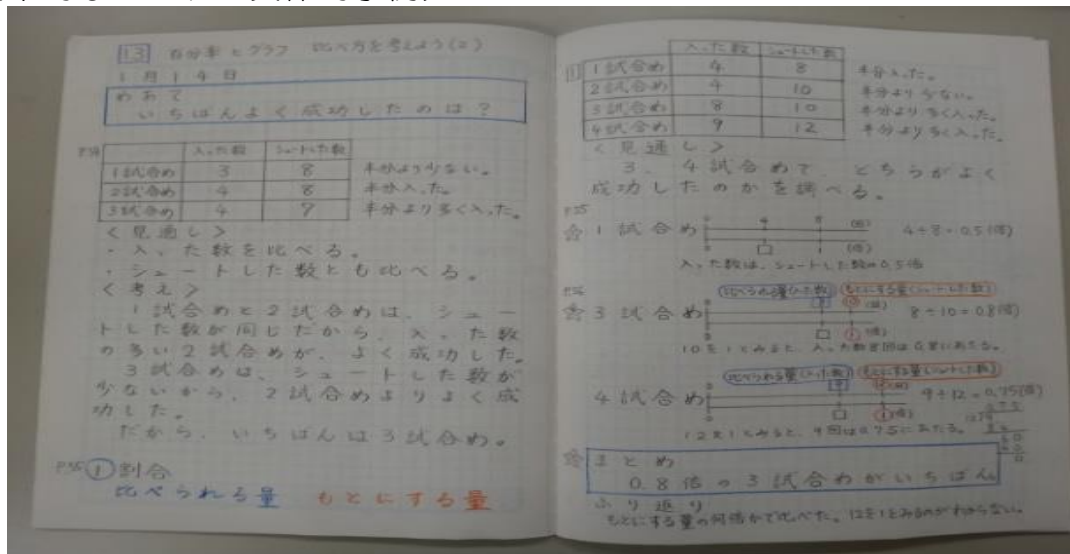 13 百分率とグラフ 比べ方を考えよう(2)
1月14日
めあて
いちばんよく成功したのは?
P.54
入った数 シュートした数
1試合め 3 8 半分より少ない。
2試合め 4 8 半分入った。
3試合め 4 7 半分より多く入った。
<見通し>
・入った数を比べる。
・シュートした数とも比べる。
<考え>
1試合めと2試合めは、シュー
トした数が同じだから、入った数
の多い2試合めが、よく成功した。
3試合めは、シュートした数が
少ないから、2試合めよりよく成
功した。
だから、いちばんは3試合め。
P.55 ① 割合
比べられる量 もとにする量
入った数 シュートした数
1 1試合め 4 8 半分入った。
2試合め 4 10 半分より少ない。
3試合め 8 10 半分より多く入った。
4試合め 9 12 半分より多く入った。
<見通し>
3、4試合めで、どちらがよく
成功したのかを調べる。
P.55
1試合め 0 4 8 (回) 4÷8=0.5(倍)
0 □ 1 (倍)
入った数は、シュートした数の0.5倍
P.56
比べられる量(入った数) もとにする量(シュートした数)
3試合め 0 8 10 (回) 8÷10=0.8(倍)
0 □ 1 (倍)
10を1とみると、入った数8回は0.8にあたる。
比べられる量(入った数) もとにする量(シュートした数)
4試合め 0 9 12 (回) 9÷12=0.75(倍)
0 □ 1 (倍)
12を1とみると、9回は0.75にあたる。
まとめ
0.8倍の3試合めがいちばん
ふり返り
もとにする量の何倍かで比べた。12を1とみるのがわからない。